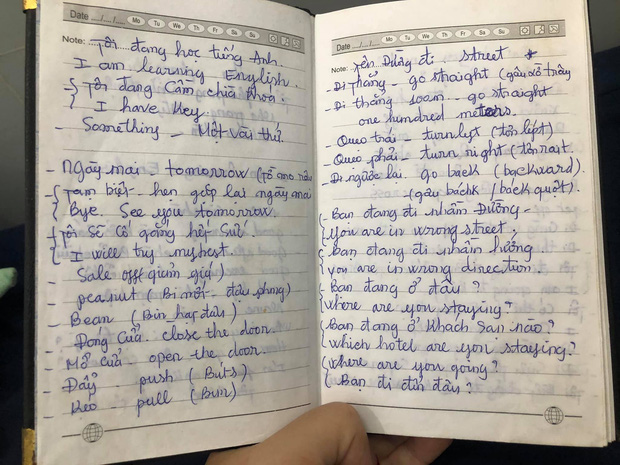 Date ..../..../.... Mo Tu We Th Fr Sa Su
Note: Tôi đang học tiếng Anh.
I am learning English.
Tôi đang Cầm chìa khoá.
I have key.
- Something - Một vài thứ.
- Ngày mai : tomorrow
Tạm biệt - hẹn gặp lại ngày mai
Bye. See you tomorrow.
Tôi Sẽ Cố gắng hết Sức
I will try my best.
- Sale off (giảm giá)
- peanut ( Bi nớt - đậu phụng)
- Bean ( Bin hạt đậu )
- Đóng Cửa. close the door.
- Mở Cửa open the door.
- Đẩy push ( Búts )
- Kéo pull ( Bun )
Date ..../..../.... Mo Tu We Th Fr Sa Su
Note: Tên Đường đi. street
- Đi Thẳng - go straight
- Đi thẳng 100m - go straight
one hundred meters.
- Queo trái - turn lept ( tơn lépt)
- Queo phải - turn right ( tơn rait.
- Đi ngược lại go back ( backward).
- Bạn đang đi nhầm Đường -
you are in wrong street.
Bạn đang đi nhầm hướng.
you are in wrong direction.
Bạn đang ở đâu ?
where are you staying ?
Bạn đang ở Khách Sạn nào ?
which hotel are you staying?
where are you going ?
Bạn đi đến đâu ?